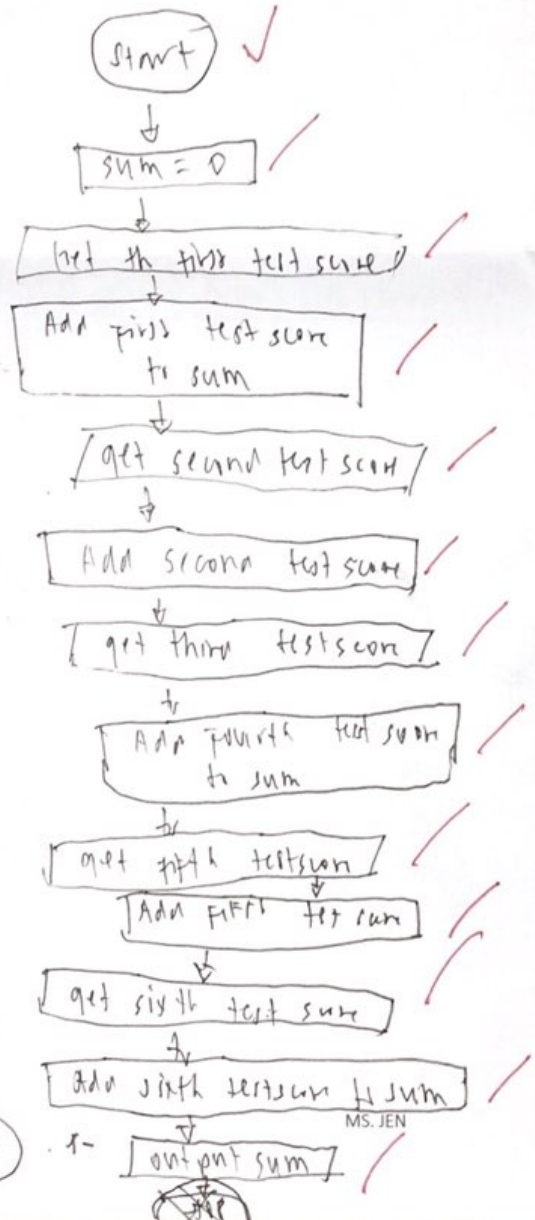 start
sum = 0
Get th first test score
Add first test score
to sum
get second test score
Add second test score
get third testscore
Add fourth test score
to sum
get fifth testscore
Add fifth
get sixth test
Add sixth testscore to sum
MS. JEN
output sum